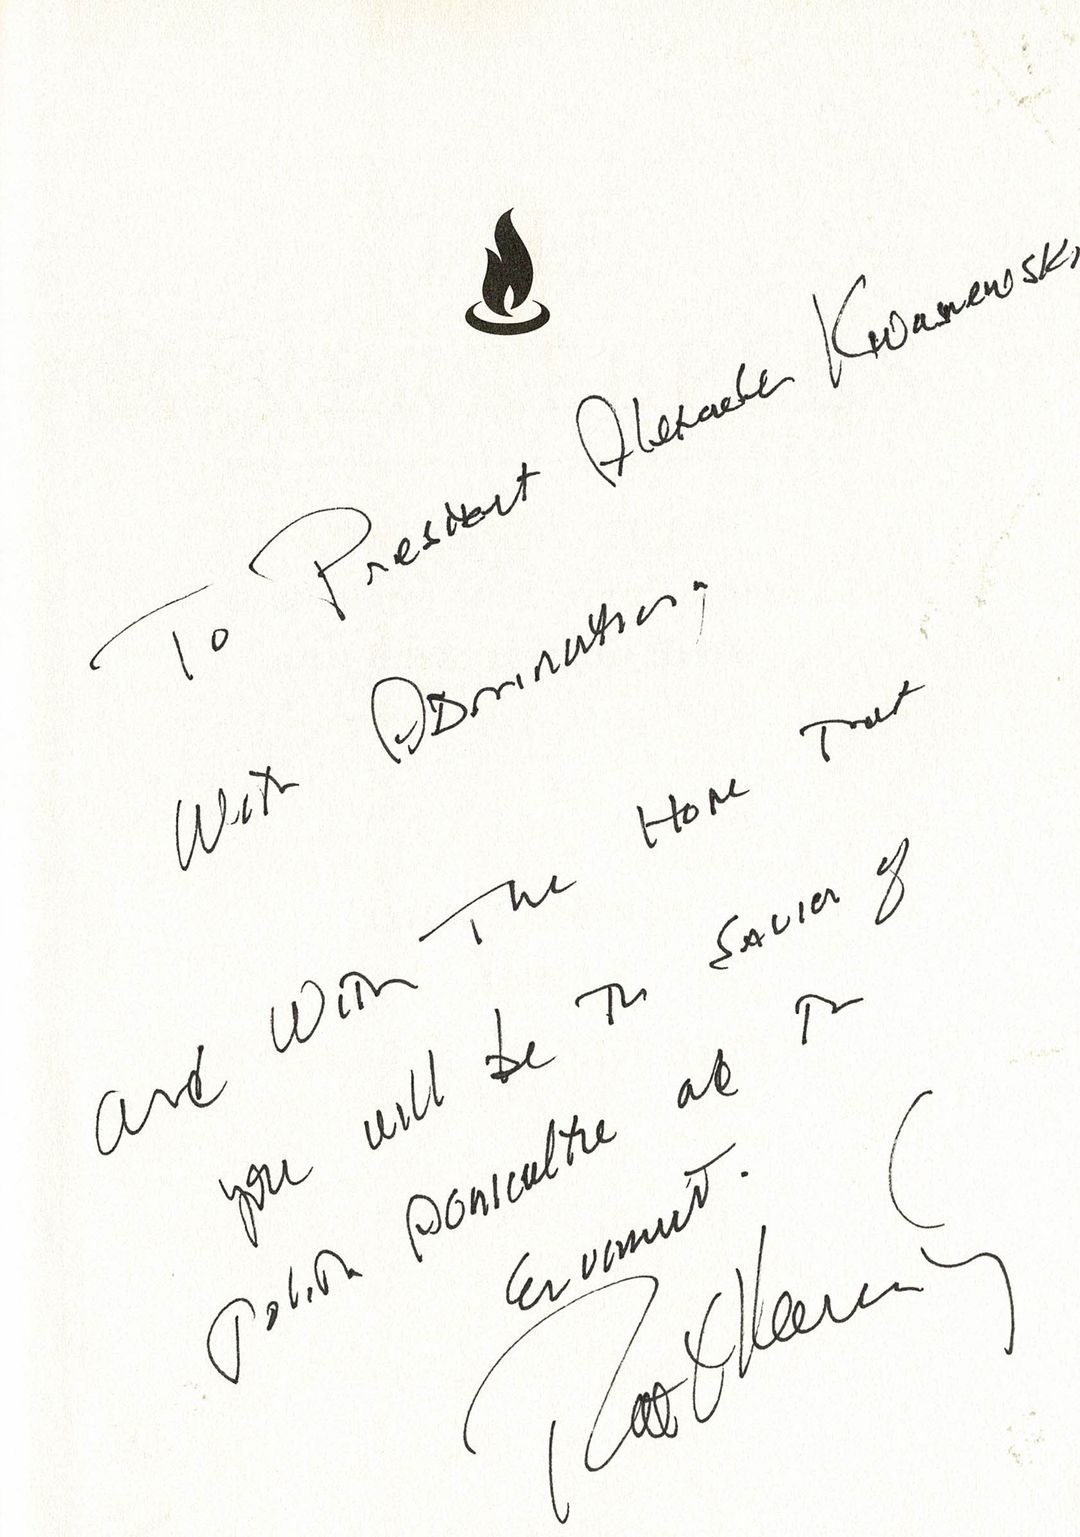 To President Alexander Kwasnewski
With Admiration,
and With The Hope That
you will be The Savior of
Polish Agriculture and The
Enviroment.